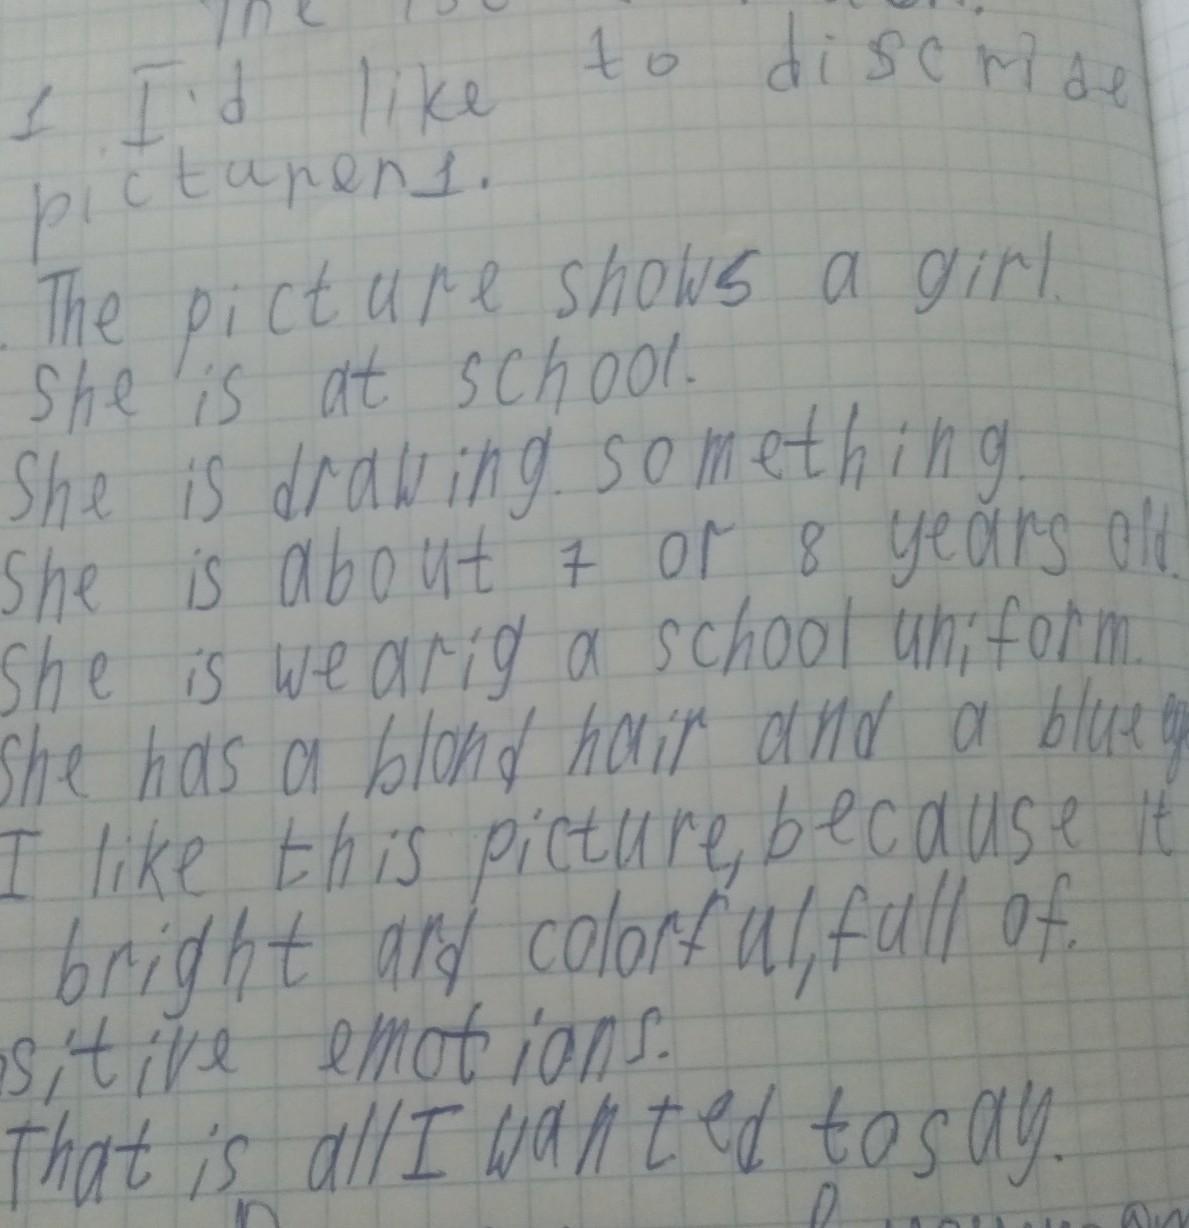 The
1 I'd like to discride
picturen1.
The picture shows a girl.
She is at school.
She is drawing something.
She is about 7 or 8 years old.
She is wearig a school uniform.
She has a blond hair and a blue
I like this picture, because it
bright and colorful, full of.
sitive emotions.
That is all I wanted to say.